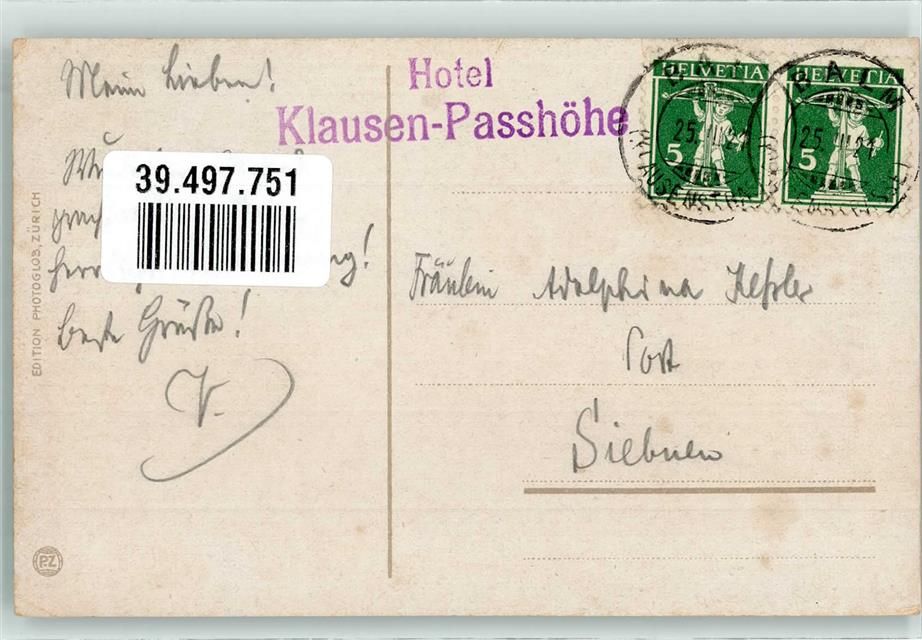 Meine Lieben!
beste Grüsse!
V.
39.497.751
EDITION PHOTOGLOB, ZÜRICH
P.Z
Hotel
Klausen-Passhöhe
HELVETIA
5
HELVETIA
5
BALM
25
BALM
25
Fräulein Adelphina Kessler
Post
Siebnen